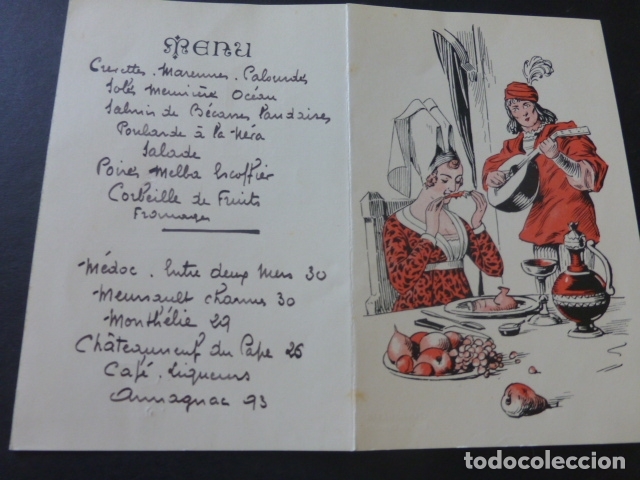 Menu
Crevettes. Marennes. Palourdes
Soles Meunière Océan
Salmis de Bécasses Landaises
Poularde à la Néra
Salade
Poires Melba Escoffier
Corbeille de Fruits
Fromages
Médoc. Entre deux Mers 30
Meursault charmes 30
Monthélie 29
Châteauneuf du Pape 26
Café. Liqueurs
Armagnac 93
todocoleccion.net